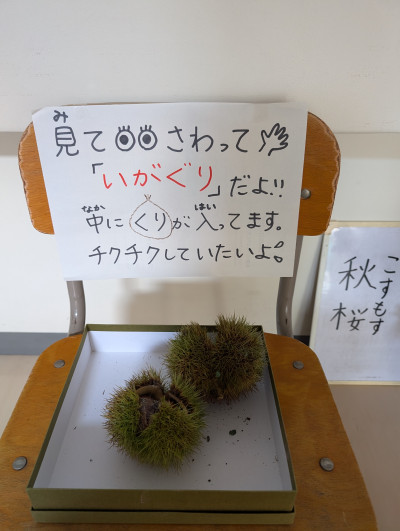 み
見てさわって
「いがぐり」だよ!!
なか はい
中にくりが入ってます。
チクチクしていたいよ!
秋桜
こすもす